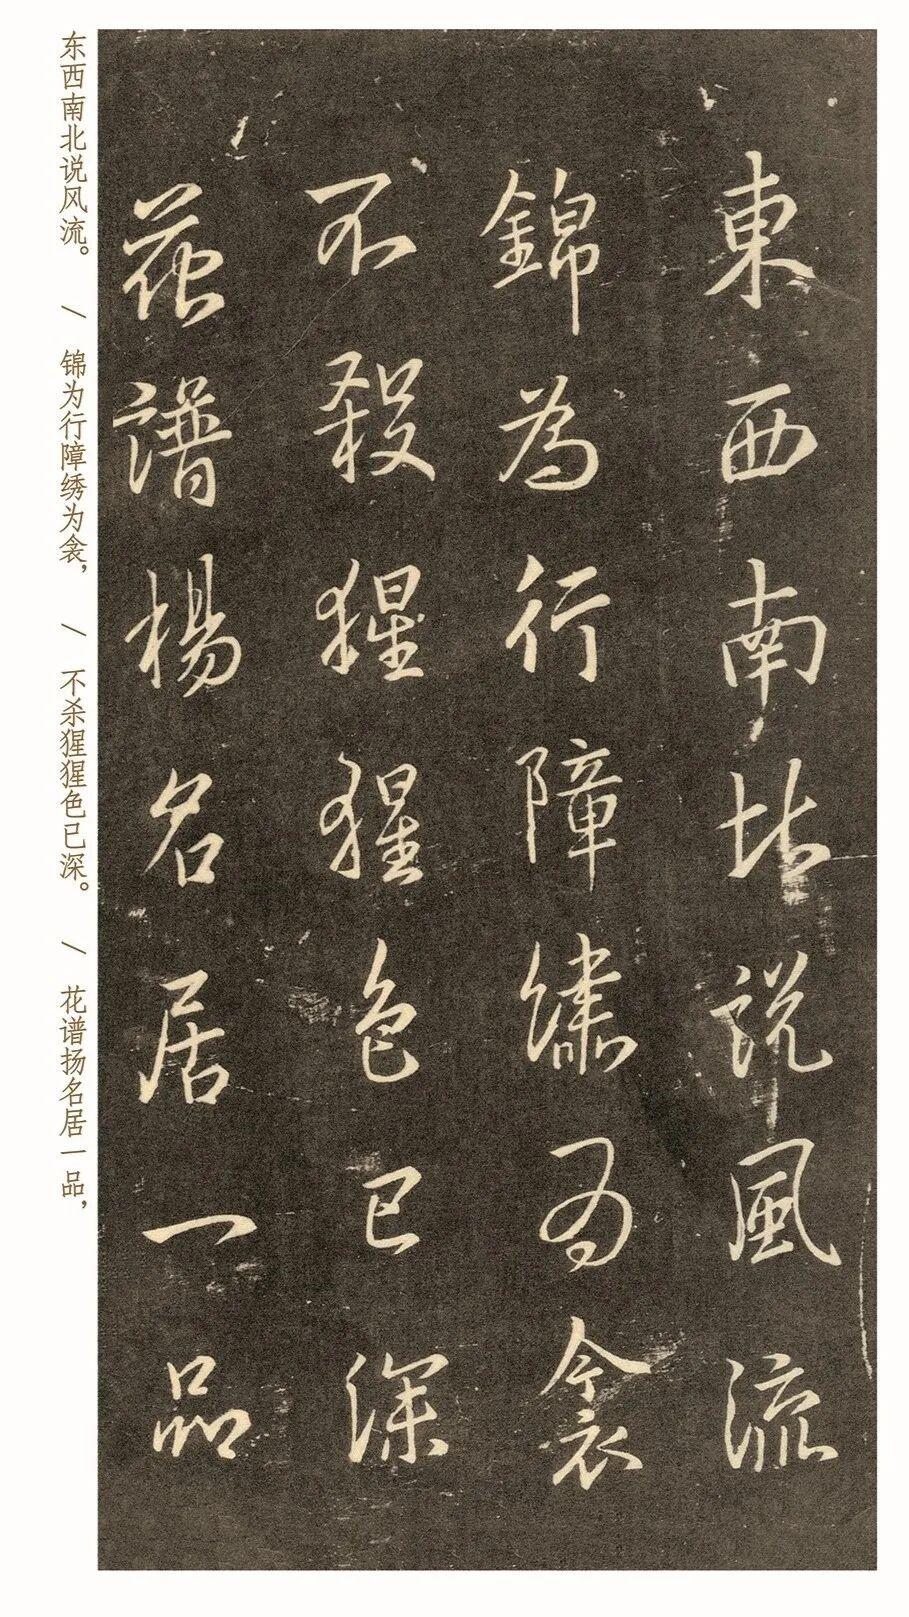 東西南北说風流
錦為行障繡為衾
不殺猩猩色已深
花譜楊名居一品
东西南北说风流。 / 锦为行障绣为衾， / 不杀猩猩色已深。 / 花谱扬名居一品，